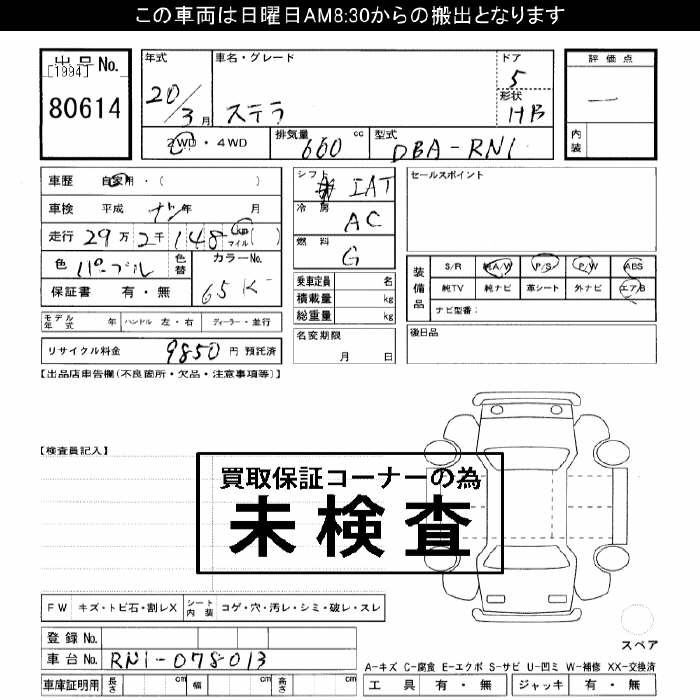 この車両は日曜日AM8:30からの搬出となります
出品No.
[1994]
80614
年式
20/3月
車名・グレード
ステラ
ドア
5
形状
HB
評価点
—
内装
2WD・4WD
排気量 660 cc
型式 DBA-RN1
車歴 自家用・( )
車検 平成 年 月
走行 29万2千148 km マイル( )
色 パープル
色替
カラーNo.
65K
保証書 有・無
シフト IAT
冷房 AC
燃料 G
乗車定員 名
積載量 kg
総重量 kg
セールスポイント
装備品
S/R 純A/W P/S P/W ABS
純TV 純ナビ 革シート 外ナビ エアB
ナビ型番:
モデル年式 年 ハンドル 左・右 ディーラー・並行
リサイクル料金 9850 円 預託済
名変期限
月 日
後日品
【出品店車告欄(不良箇所・欠品・注意事項等)】
【検査員記入】
買取保証コーナーの為
未検査
FW キズ・トビ石・割レX シート内装 コゲ・穴・汚レ・シミ・破レ・スレ
登録No.
車台No. RN1-078013
車庫証明用 長さ cm 幅 cm 高さ cm
スペア
A-キズ C-腐食 E-エクボ S-サビ U-凹ミ W-補修 XX-交換済
工具 有・無 ジャッキ 有・無